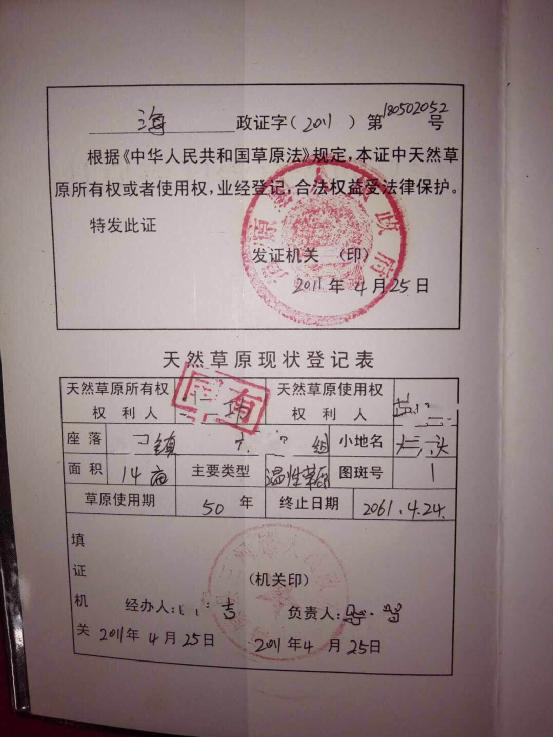 海 政证字(2011)第180502052号
根据《中华人民共和国草原法》规定,本证中天然草
原所有权或者使用权,业经登记,合法权益受法律保护。
特发此证
发证机关 (印)
2011年4月25日
天然草原现状登记表
天然草原所有权权利人 国有 天然草原使用权权利人
座落 镇 组 小地名 头
面积 14亩 主要类型 温性草原 图斑号 1
草原使用期 50年 终止日期 2061.4.24.
填证机关
(机关印)
经办人: 吉 负责人:
2011年4月25日 2011年4月25日